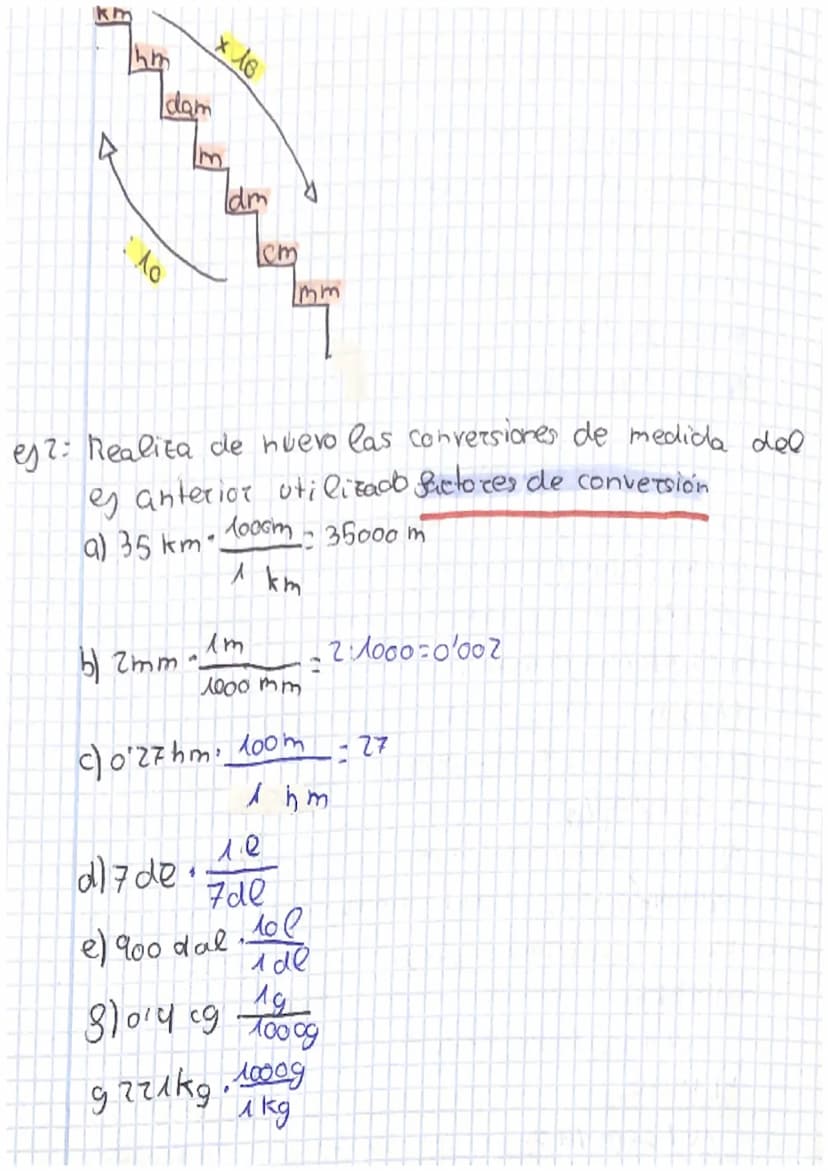 km
x 10
hm
dam
m
dm
cm
:10
mm
ej2: Realiza de nuevo las conversiones de medida del
ej anterior utilizado factores de conversión
a) 35 km · 1000m / 1 km = 35000 m
b) 2mm · 1m / 1000 mm = 2:1000=0'002
c) 0'27hm · 100m / 1 hm = 27
d) 7 dl · 1 l / 7dl
e) 900 dal · 10l / 1 dl
g) 0'4 cg 1g / 100cg
g 221kg · 1000g / 1kg